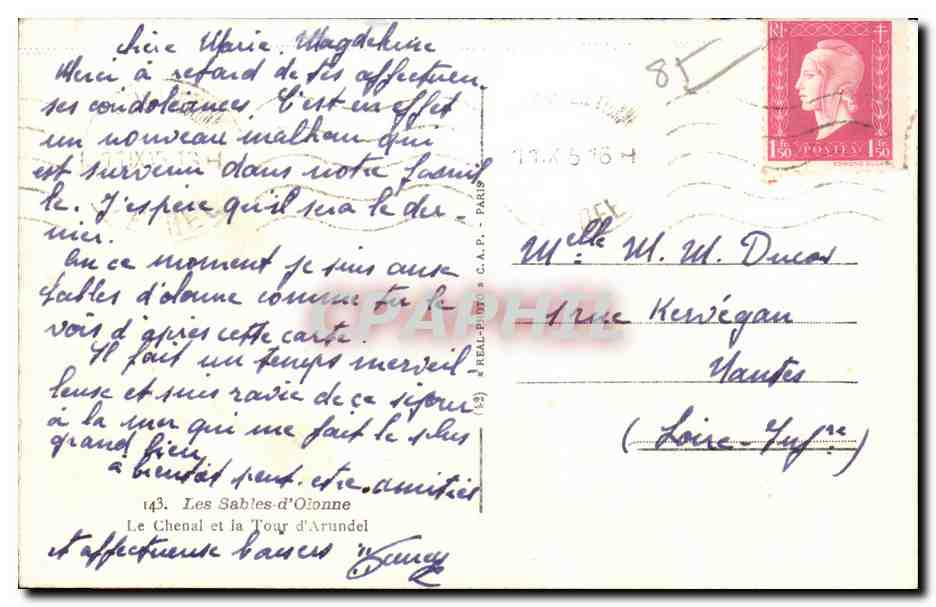 chère Marie. Magdeleine
Merci à retard de tes affectueu
ses condoléances. C'est en effet
un nouveau malheur qui
est survenu dans notre famil
le. J'espère qu'il sera le der-
nier.
En ce moment je suis aux
Sables d'olonne comme tu le
vois d'après cette carte.
Il fait un temps merveil-
leux et suis ravie de ce séjour
à la mer qui me fait le plus
grand bien
à bientôt peut-etre. amitiés
143. Les Sables-d'Olonne
Le Chenal et la Tour d'Arundel
et affectueux baisers
(42) REAL-PHOTO C.A.P. - PARIS
85
RF
1 Fr. 50 POSTES 1 Fr. 50
Melle M. M. Ducos
1 rue Kervégan
Nantes
(Loire-Infre)
CPAPHIL